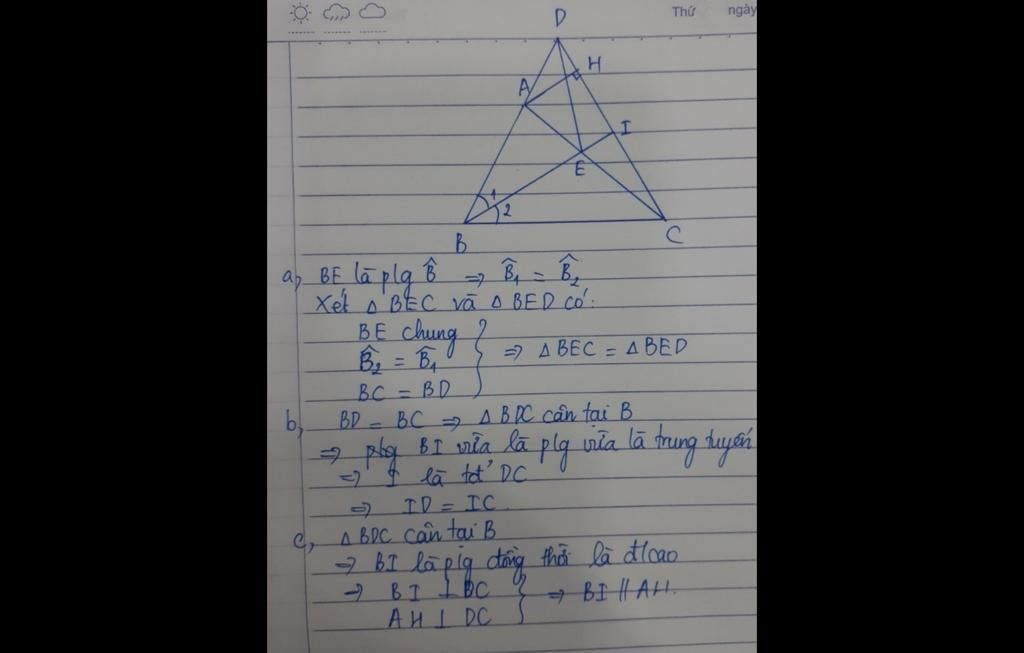 Thứ ngày
D
H
A
I
E
1
2
B
C
a, BE là plg B̂ => B̂₁ = B̂₂
Xét △ BEC và △ BED có:
BE chung
B̂₂ = B̂₁ => △ BEC = △ BED
BC = BD
b, BD = BC => △ BDC cân tại B
=> plg BI vừa là plg vừa là trung tuyến
=> I là tđ' DC
=> ID = IC
c, △ BDC cân tại B
=> BI là plg đồng thời là đ/cao
=> BI ⊥ DC => BI // AH.
AH ⊥ DC